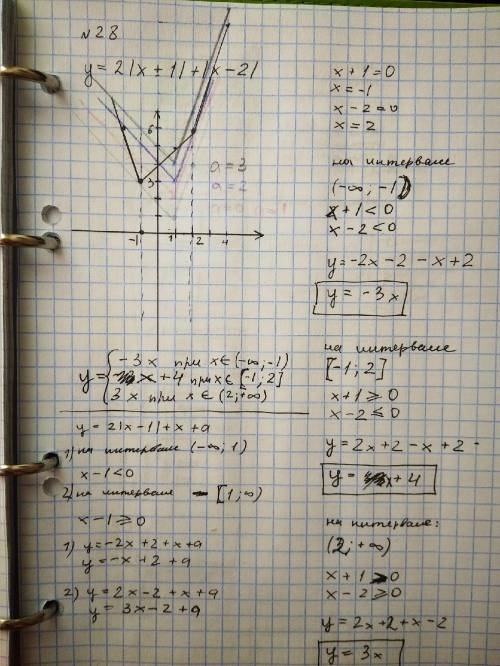 №28
y = 2|x + 1| + |x - 2|
6
3
-1
1
2
4
a = 3
a = 2
y = { -3x при x ∈ (-∞; -1)
x + 4 при x ∈ [-1; 2]
3x при x ∈ (2; +∞)
y = 2|x - 1| + x + a
1) на интервале (-∞; 1)
x - 1 < 0
2) на интервале [1; ∞)
x - 1 ⩾ 0
1) y = -2x + 2 + x + a
y = -x + 2 + a
2) y = 2x - 2 + x + a
y = 3x - 2 + a
x + 1 = 0
x = -1
x - 2 = 0
x = 2
на интервале
(-∞; -1)
x + 1 < 0
x - 2 < 0
y = -2x - 2 - x + 2
y = -3x
на интервале
[-1; 2]
x + 1 ⩾ 0
x - 2 ⩽ 0
y = 2x + 2 - x + 2 -
y = x + 4
на интервале:
(2; +∞)
x + 1 > 0
x - 2 ⩾ 0
y = 2x + 2 + x - 2
y = 3x